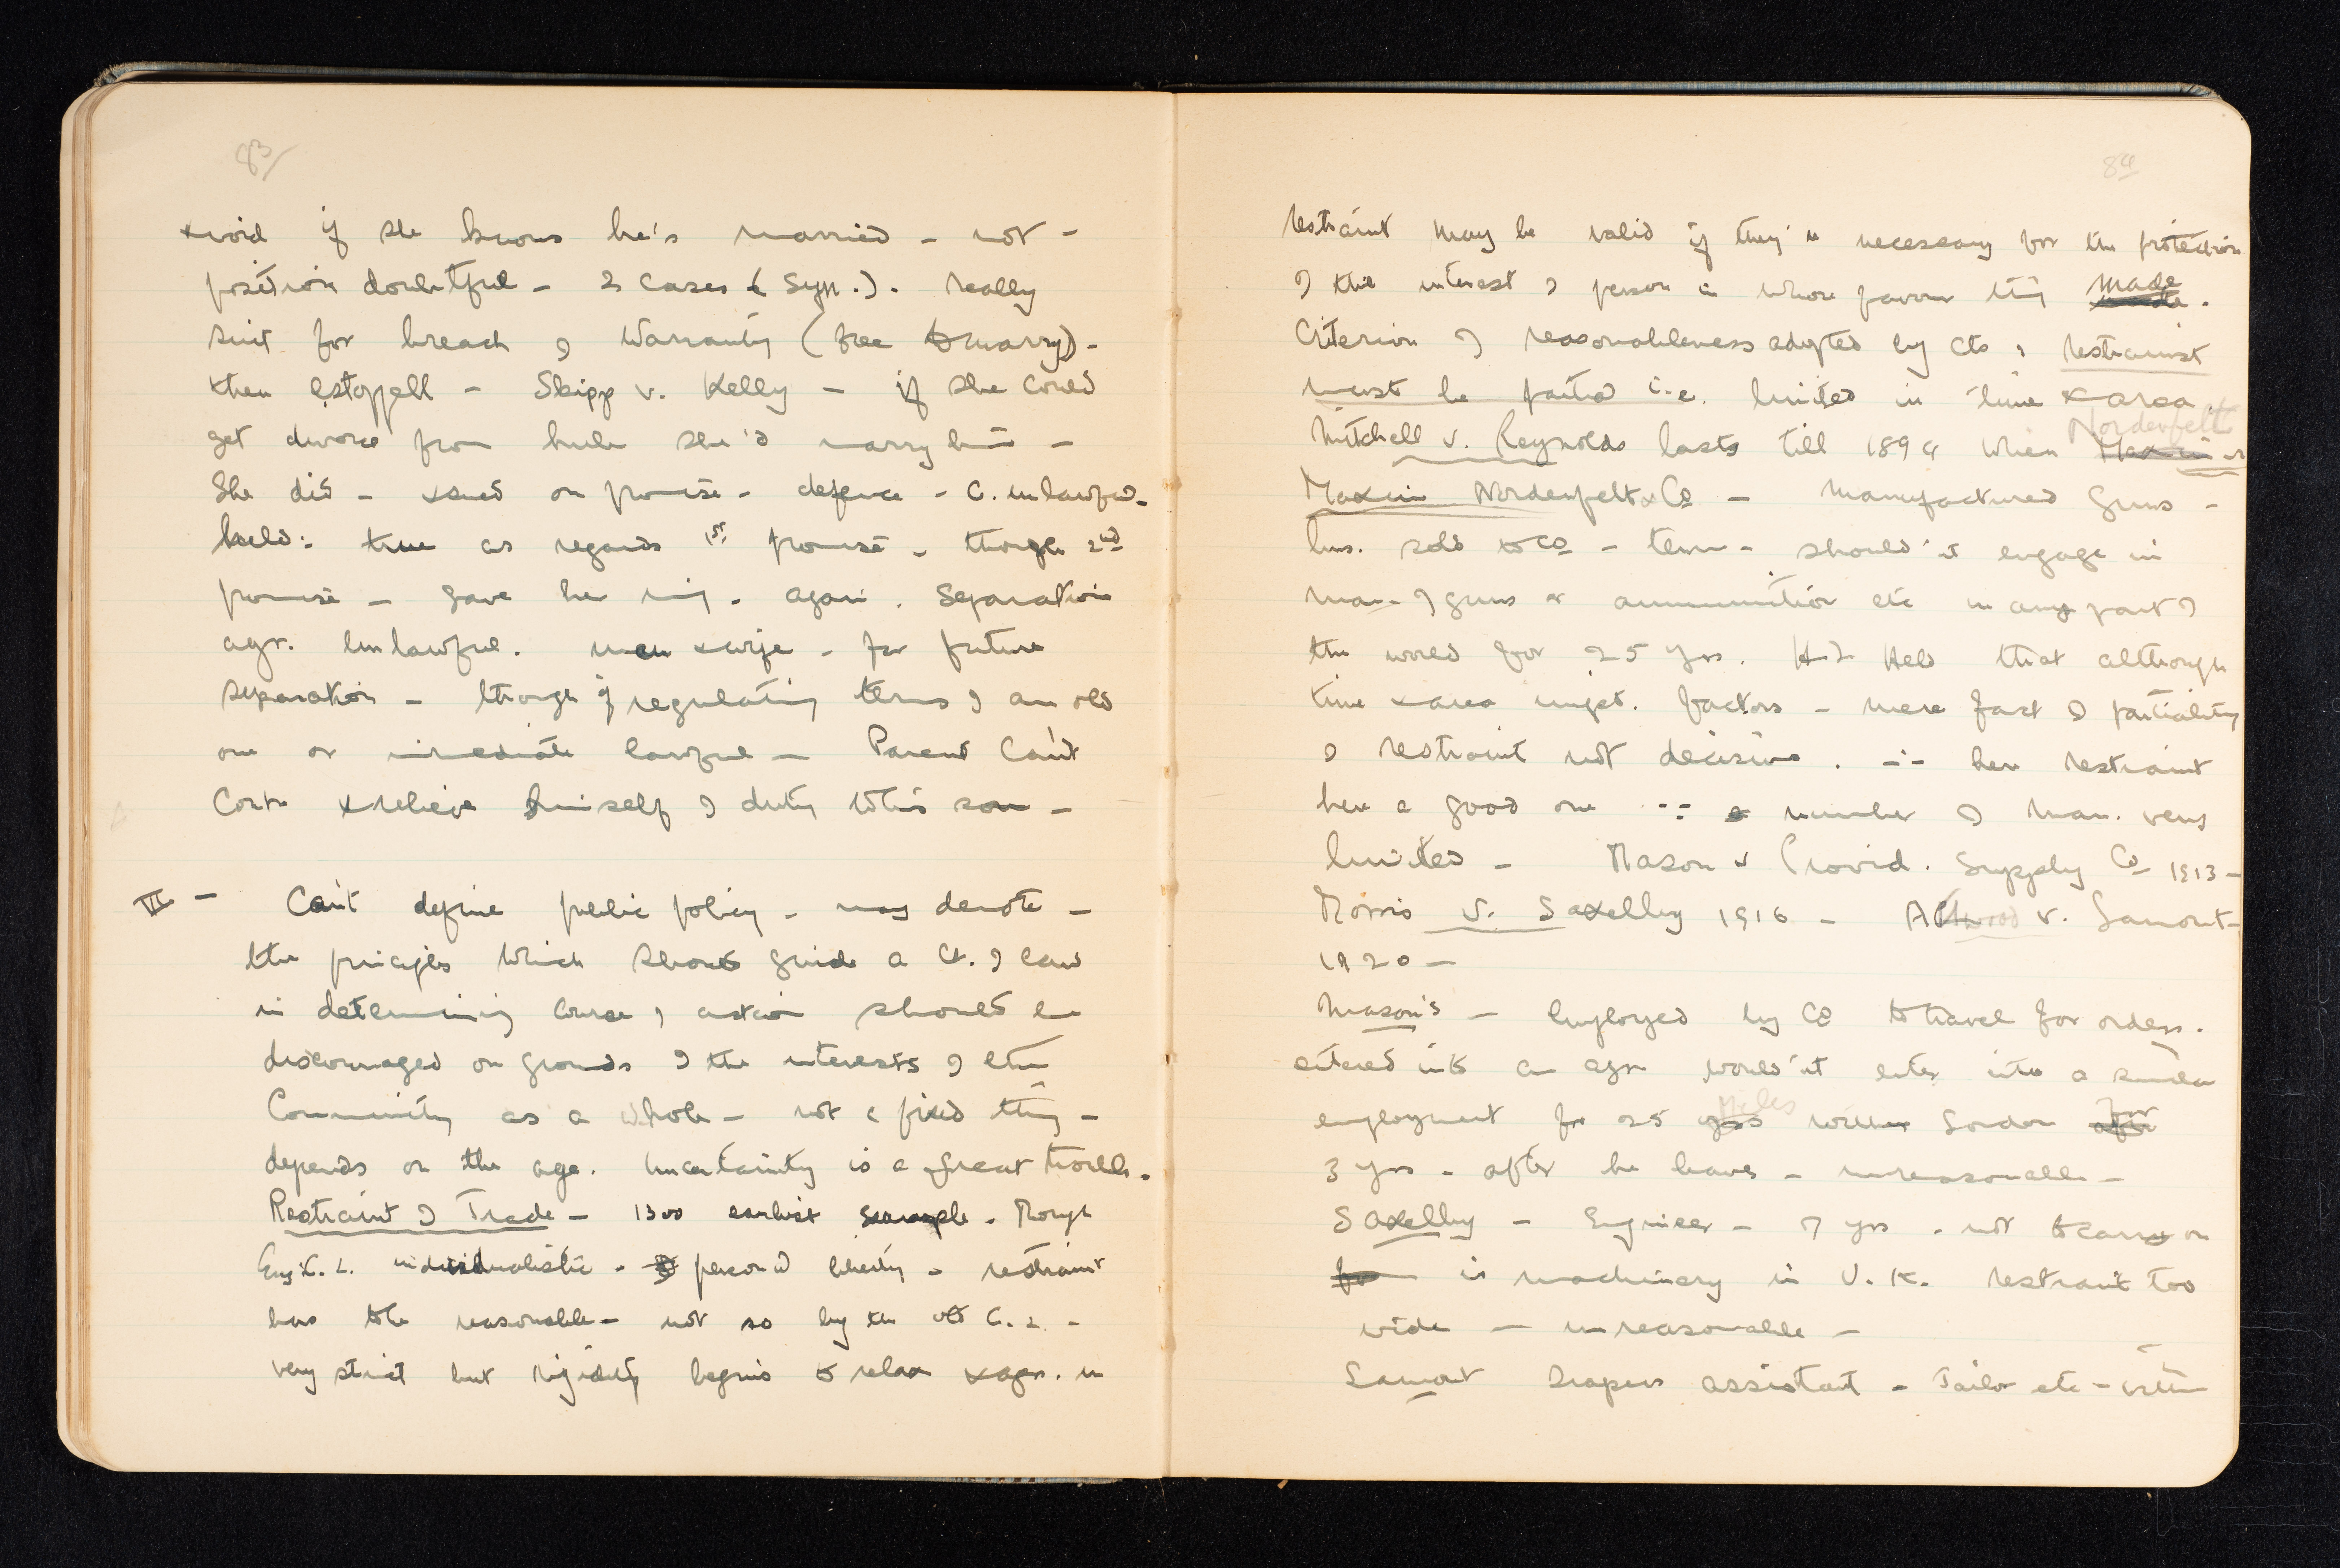 83
& void if she knows he's married - not -
position doubtful - 2 cases (Syn.). Really
suit for breach of Warranty (free to marry) -
then estoppell - Skipp v. Kelly - if she could
get divorce from hub she'd marry him -
She did - & sued on promise - defence - C. unlawful -
held: true as regards 1st promise - though 2nd
promise - gave her ring - again. Separation
agr. unlawful. man & wife - for future
separation - though if regulating terms of an old
one or immediate lawful - Parent can't
Contr & relieve himself of duty to his son -
VI - Can't define public policy - may denote -
the principles which should guide a Ct. of law
in determining course of action should be
discouraged on grounds of the interests of the
Community as a whole - not a fixed thing -
depends on the age. Uncertainty is a great trouble.
Restraint of Trade - 1300 earliest example. Though
Eng. C. L. individualistic - personal liberty - restraint
has to be reasonable - not so by the old C. L. -
very strict but rigidity begins to relax & agr. in
84
restraint may be valid if they're necessary for the protection
of the interest of person in whose favour it is made.
Criterion of reasonableness adopted by cts, restraint
must be partial i.e. limited in time & area.
Mitchell v. Reynolds lasts till 1894 when Maxim Nordenfelt v
Maxim Nordenfelt & Co - manufactured guns -
bus. sold to Co - term - shouldn't engage in
man. of guns or ammunition etc in any part of
the world for 25 yrs. H.L Held that although
time & area impt. factors - mere fact of partiality
of restraint not decisive. ∴ here restraint
here a good one ∵ number of man. very
limited - Mason v Provid. Supply Co 1913 -
Morris v. Saxelby 1916 - Attwood v. Lamont -
1920 -
Mason's - Employed by Co to travel for orders.
entered into an agr wouldn't enter into a similar
employment for 25 yrs Miles within London after for
3 yrs - after he leaves - unreasonable -
Saxelby - Engineer - 7 yrs - not to carry on
in machinery in U.K. restraint too
wide - unreasonable -
Lamont Drapers assistant - Tailor etc - within